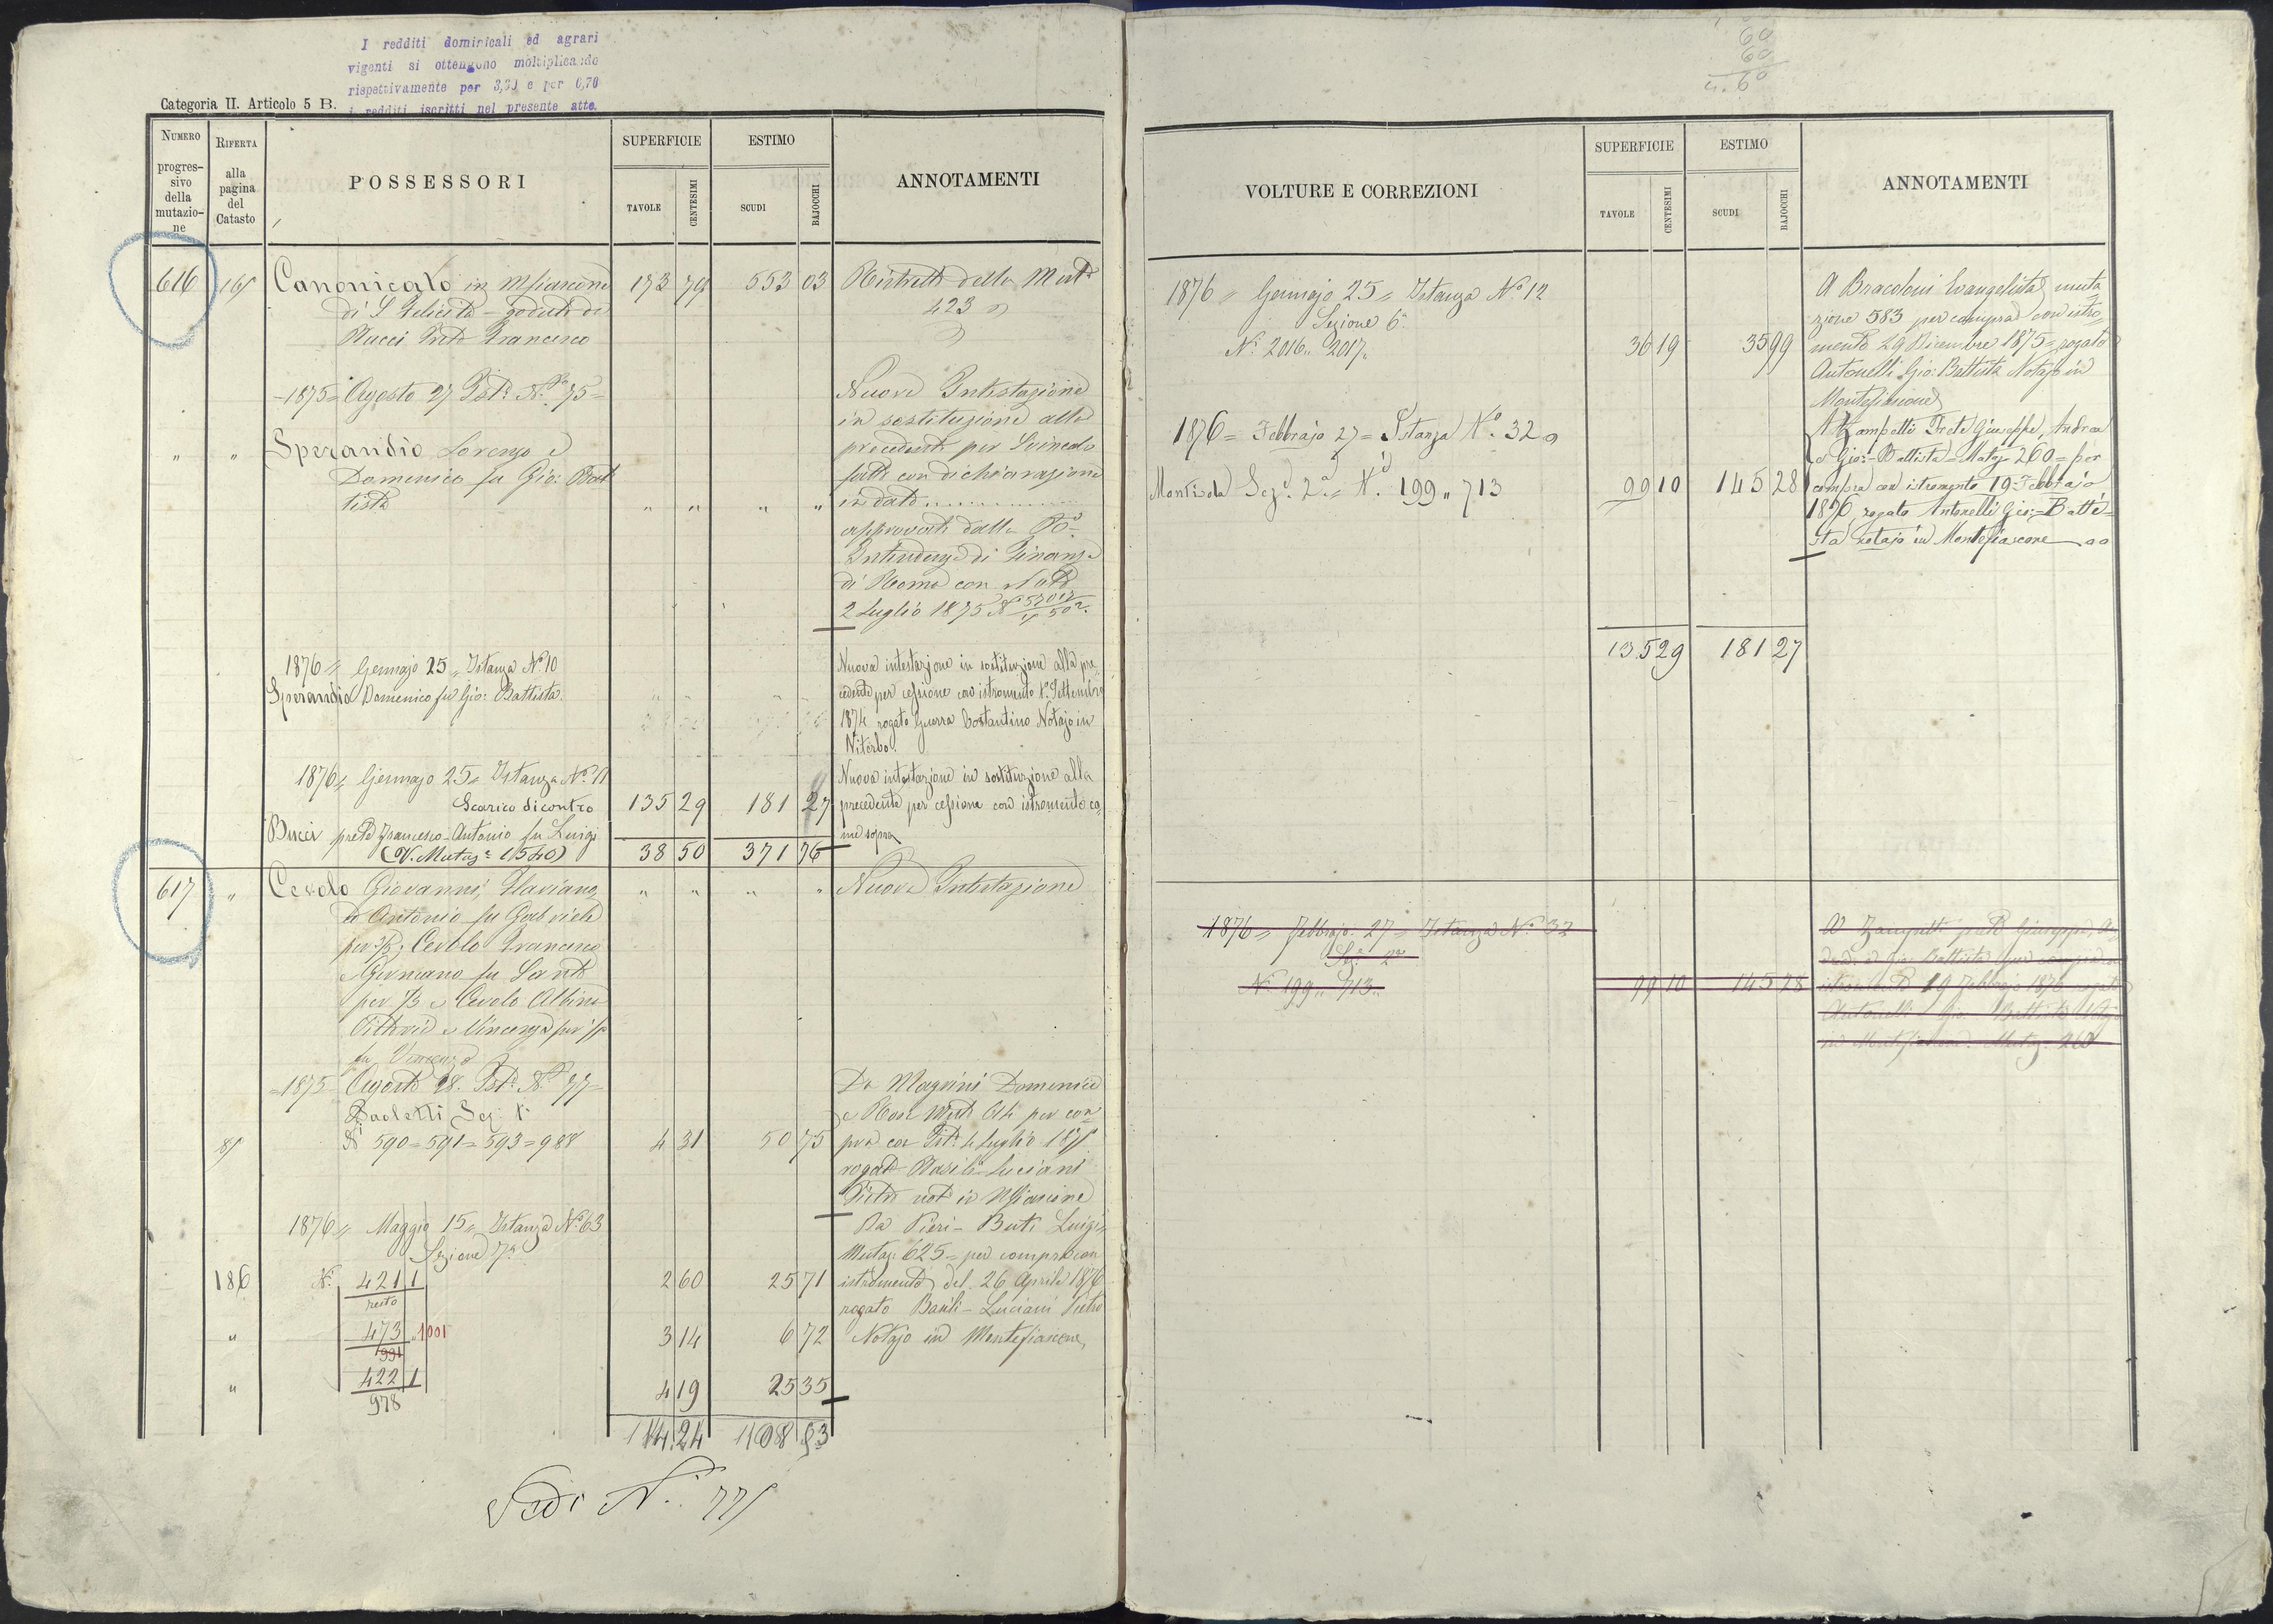 I redditi dominicali ed agrari
vigenti si ottengono moltiplicando
rispettivamente per 3,30 e per 0,70
i redditi iscritti nel presente atto.
Categoria II. Articolo 5 B.
NUMERO progressivo della mutazione
RIFERTA alla pagina del Catasto
POSSESSORI
SUPERFICIE
TAVOLE
CENTESIMI
ESTIMO
SCUDI
BAJOCCHI
ANNOTAMENTI
616
Canonicato in Mfiascone 173 79 553 03
di S Felicita - goduto da
423
Francesco
1875 = Agosto 27 Ist. N. 75 =
Nuova Intestazione
in sostituzione alla
Sperandio Lorenzo e
precedente per Svincolo
Domenico fu Gio: Bat
fatto con dichiarazione
tista
in data ..............
approvata dalla
Intendenza di Finanza
di Roma con Nota
2 Luglio 1875 N°
1876 = Gennajo 25 = Istanza N° 10
Sperandio Domenico fu Gio: Battista.
Nuova intestazione in sostituzione alla pre
cedente per cessione con istromento 1° Settembre
1874 rogato Guerra Costantino Notajo in
Viterbo.
1876 = Gennajo 25 = Istanza N° 11
Nuova intestazione in sostituzione alla
Scarico dicontro 135 29 181 27 precedente per cessione con istromento co
Bucci prete Francesco-Antonio fu Luigi
me sopra
(V. Mutaz: 1540) 38 50 371 76
617 " Cevolo Giovanni, Flaviano, " " " " Nuova Intestazione
e Antonio fu Gabriele
per 1/3; Cevolo Francesco
e fu Sante
per 1/3 e Cevolo Albino
e Vincenza per 1/3
fu Vincenzo
= 1875 = Agosto 28. Ist. N. 77 =
Paoletti Sez 1
N 590 = 591 = 593 = 988 4 31 50 75
Da Magrini Domenico
pra con Ist. 4 Luglio 1875
rogato Basili Luciani
Pietro not in Mfiascone
1876 = Maggio 15 = Istanza N° 63
Sezione 7a
Da Pieri - Buti Luigi =
Mutaz: 625 = per compra con
186 N. 421 1 2 60 25 71 istromento del 26 Aprile 1876
resto
rogato Basili - Luciani Pietro
" 473 1001 3 14 6 72 Notajo in Montefiascone
991
" 422 1 4 19 25 35
978
14 24 108 53
Vedi N.
60
60
VOLTURE E CORREZIONI
SUPERFICIE
TAVOLE
CENTESIMI
ESTIMO
SCUDI
BAJOCCHI
ANNOTAMENTI
1876 = Gennajo 25 = Istanza N° 12
Sezione 6a
N. 2016 .. 2017. 36 19 35 99
A Bracoloni Evangelista muta
zione 583 per compra con istro
mento 29 Dicembre 1875 = rogato
Antonelli Gio: Battista Notajo in
Montefiascone
1876 = Febbrajo 27 = Istanza N° 32
Montisola Sez. 2a = N. 199 " 713 99 10 145 28
A Zampetti Prete Giuseppe, Andrea
e Gio: Battista = Mutaz: 260 = per
compra con istromento 19 Febbrajo
1876 rogato Antonelli Gio: = Batti=
sta notajo in Montefiascone
135 29 181 27
1876 = Febbrajo 27 = Istanza N° 32
Sez. 2a
N. 199 .. 713.. 99 10 145 28
A Zampetti prete Giuseppe, An
drea e Gio: Battista per compra con
istromento 19 Febbrajo 1876 rogato
Antonelli Gio: Battista Notajo
in Montefiascone. Mutaz: 260